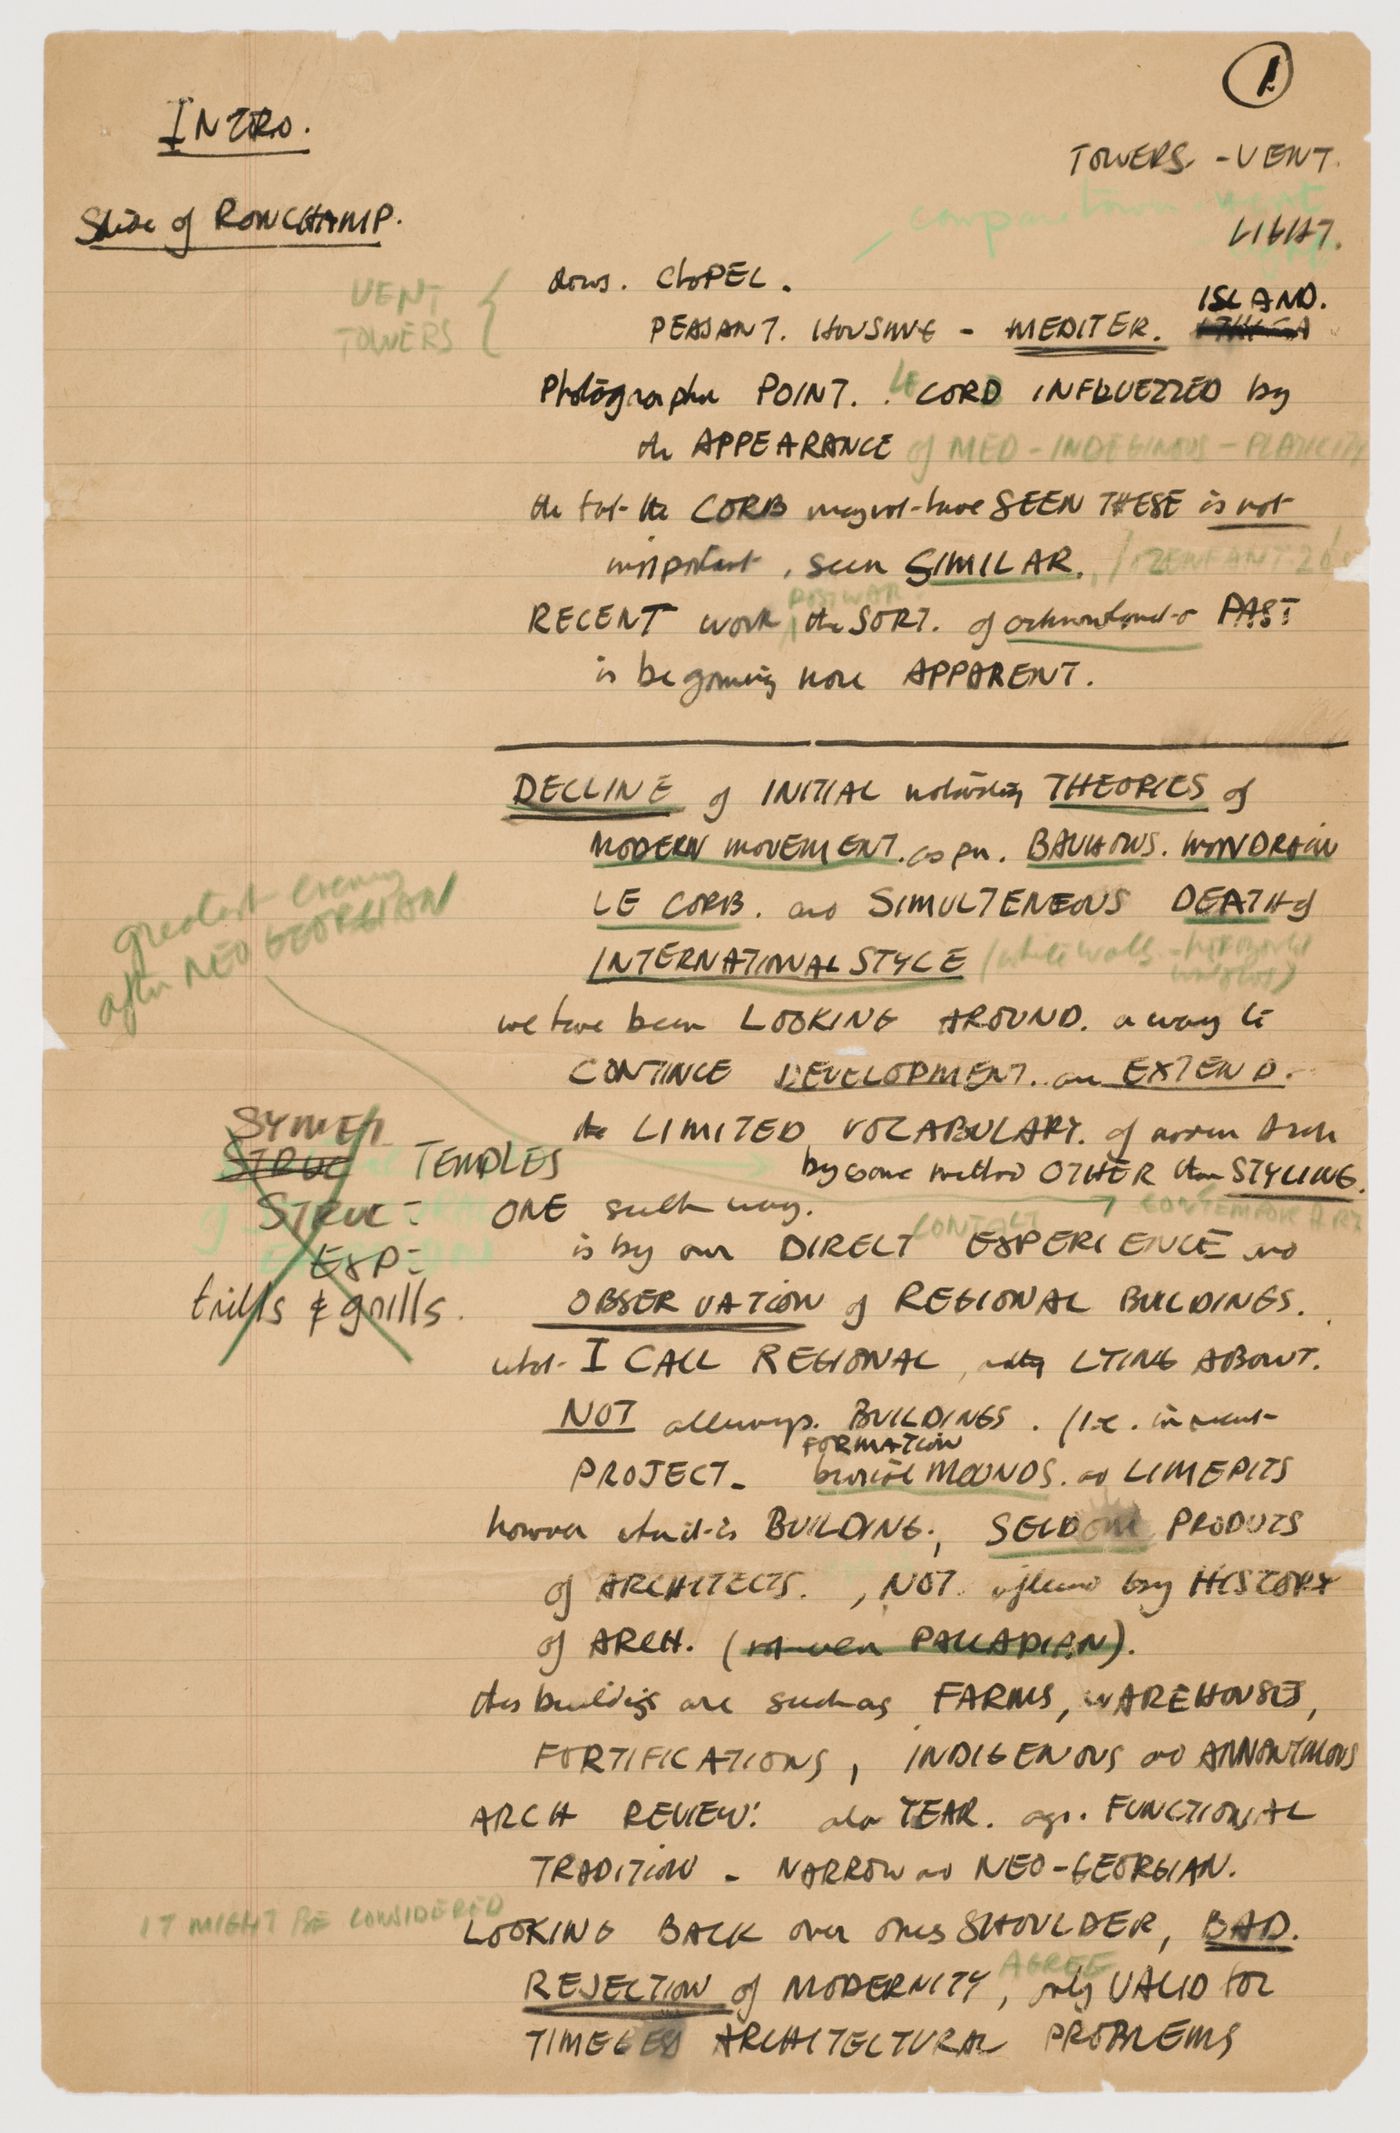 1
INTRO.
TOWERS - VENT.
compare towers - vent
Slide of RONCHAMP.
LIGHT.
light
VENT
TOWERS
CHAPEL.
ISLAND.
PEASANT. HOUSING - MEDITER.
Photographer POINT. Le CORB INFLUEZZED by
the APPEARANCE of MED - INDEGINOUS - PLASICITY
the fat the CORB may not have SEEN THESE is not
important, seen SIMILAR. / OZENFANT 20
POSTWAR
RECENT work the SORT. of PAST
is begoming more APPARENT.
DECLINE of INITIAL THEORIES of
MODERN MOVEMENT. as per. BAUHOWS. MONDRAIN
LE CORB. and SIMULTENEOUS DEATH of
INTERNATIONAL STYLE (white walls - horizontal
windows)
greatest enemy
after NEO GEORGIAN
we have been LOOKING AROUND. a way to
CONTINCE DEVELOPMENT. an EXTEND.
the LIMITED VOCABULARY. of modern Arch
by some method OTHER than STYLING.
CONTEMPORARY
SYMET
STRUC
TEMPLES
STRUC-
EXP-
frills & grills.
ONE such way.
CONTACT
is by our DIRECT EXPERIENCE and
OBSERVATION of REGIONAL BUILDINGS.
what I CALL REGIONAL, LYING ABOUT.
NOT allways. BUILDINGS. (I.e. in recent
FORMATION
PROJECT - burial MOUNDS. and LIMEPITS
however what is BUILDING., SELDOM PRODUTS
of ARCHITECTS., NOT by HISTORY
of ARCH. (not even PALLADIAN).
thes buildigs are such as FARMS, WAREHOUSES,
FORTIFICATIONS, INDIGENOUS and ANNONYMOUS
ARCH REVIEW: YEAR. ago. FUNCTIONAL
TRADITION - NARROW and NEO-GEORGIAN.
IT MIGHT BE CONSIDERED
LOOKING BACK over ones SHOULDER, BAD.
AGREE
REJECTION of MODERNITY, only VALID for
TIMELESS ARCHITECTURAL PROBLEMS